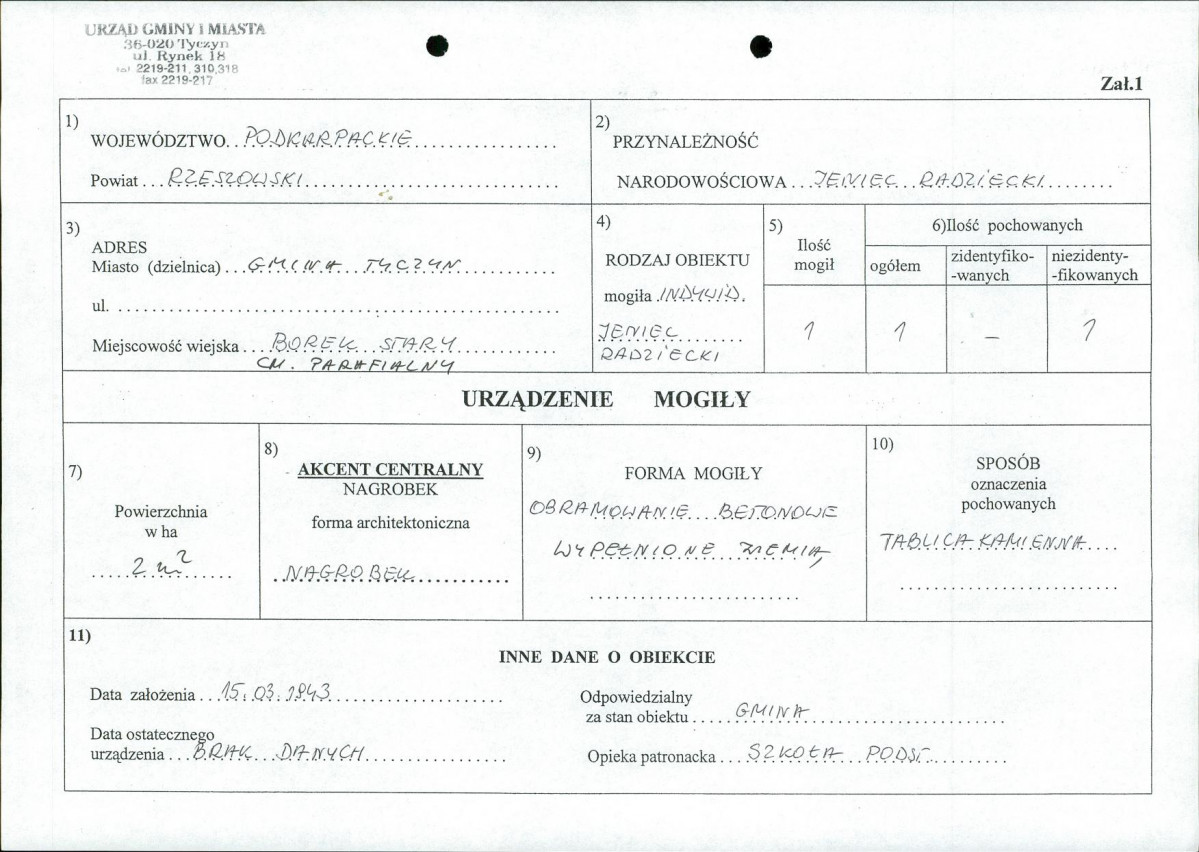 URZĄD GMINY I MIASTA
36-020 Tyczyn
ul. Rynek 18
tel. 2219-211, 310,318
fax 2219-217
Zał.1
1)
WOJEWÓDZTWO. . PODKARPACKIE
Powiat . . . RZESZOWSKI
2)
PRZYNALEŻNOŚĆ
NARODOWOŚCIOWA . . . JENIEC RADZIECKI
3)
ADRES
Miasto (dzielnica) . . . GMINA TYCZYN
ul.
Miejscowość wiejska . . . . BOREK STARY
CM. PARAFIALNY
4)
RODZAJ OBIEKTU
mogiła INDYWID.
JENIEC
RADZIECKI
5)
Ilość
mogił
1
6)Ilość pochowanych
ogółem
1
zidentyfiko-
-wanych
–
niezidenty-
-fikowanych
1
URZĄDZENIE MOGIŁY
7)
Powierzchnia
w ha
2 m²
8)
AKCENT CENTRALNY
NAGROBEK
forma architektoniczna
NAGROBEK
9)
FORMA MOGIŁY
OBRAMOWANIE BETONOWE
WYPEŁNIONE ZIEMIĄ
10)
SPOSÓB
oznaczenia
pochowanych
TABLICA KAMIENNA
11)
INNE DANE O OBIEKCIE
Data założenia . . . 15.03.1943
Data ostatecznego
urządzenia . . . BRAK DANYCH
Odpowiedzialny
za stan obiektu . . . . . GMINA
Opieka patronacka . . . SZKOŁA PODST.